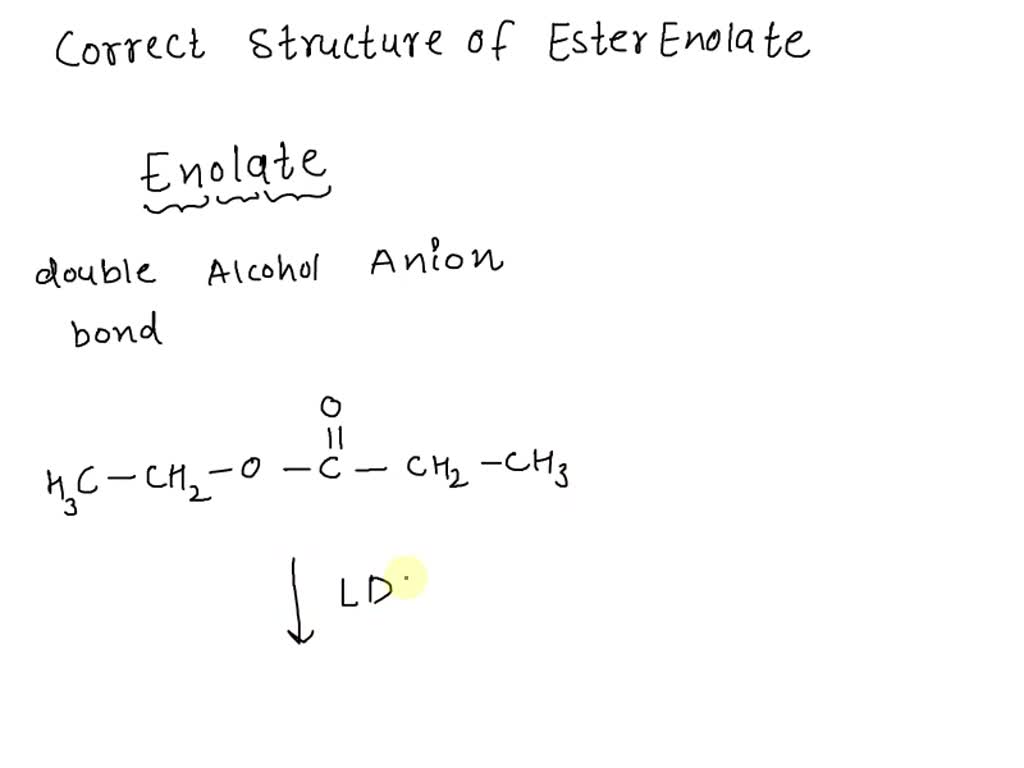 Correct Structure of Ester Enolate
Enolate
double Alcohol Anion
bond
O
||
H3C-CH2-O-C-CH2-CH3
LD